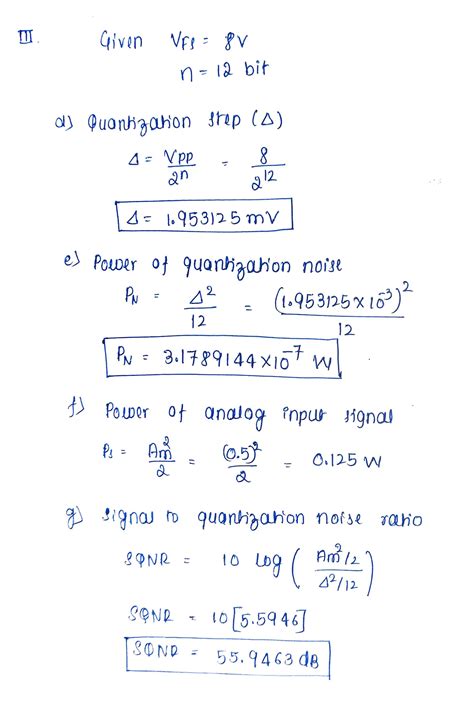 III. Given VFS = 8V
n = 12 bit
d) Quantization step (Δ)
Δ = VPP/2^n = 8/2^12
Δ = 1.953125 mV
e) Power of quantization noise
PN = Δ^2/12 = (1.953125 x 10^-3)^2/12
PN = 3.1789144 x 10^-7 W
f) Power of analog input signal
Ps = Am^2/2 = (0.5)^2/2 = 0.125 W
g) Signal to quantization noise ratio
SQNR = 10 log ( Am^2/2 / Δ^2/12 )
SQNR = 10 [5.5946]
SQNR = 55.9463 dB